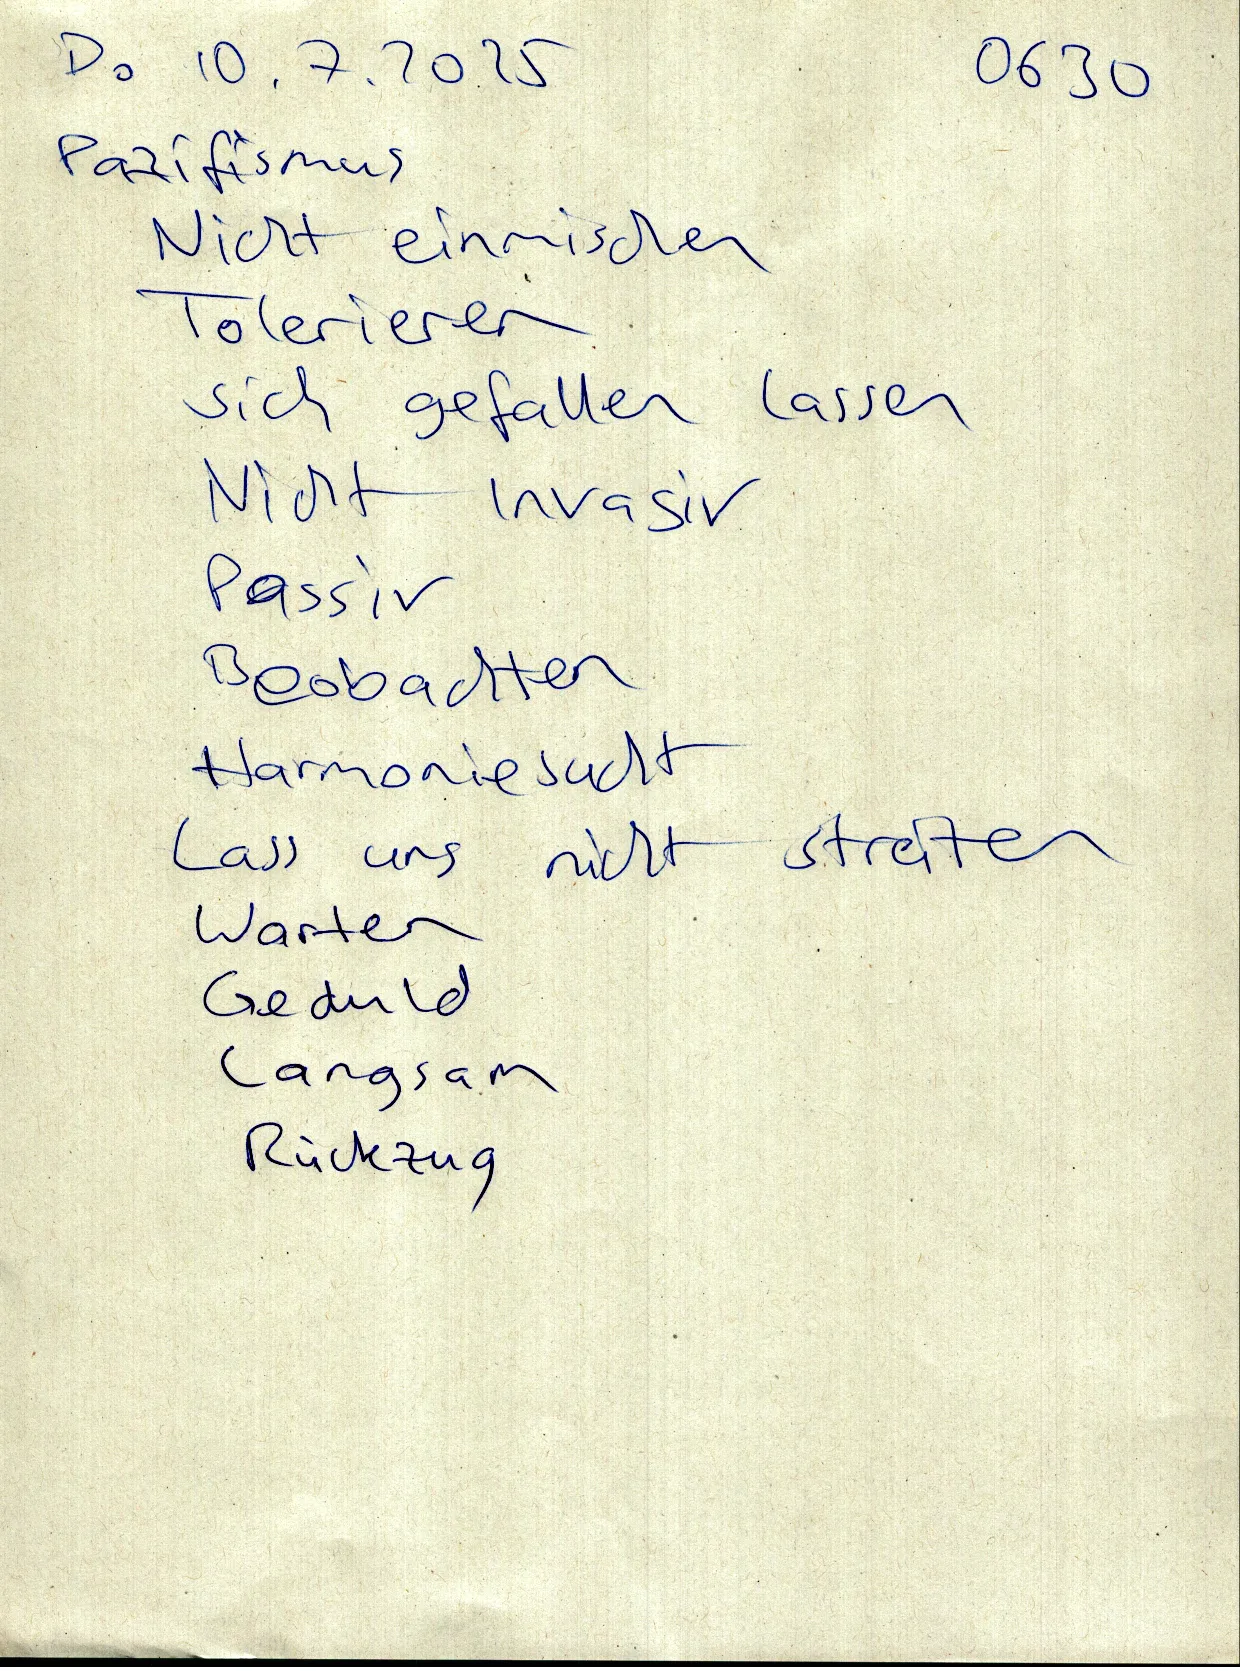 Do 10.7.2025 0630
Pazifismus
Nicht einmischen
Tolerieren
sich gefallen lassen
Nicht invasiv
Passiv
Beobachten
Harmoniesucht
Lass uns nicht streiten
Warten
Geduld
Langsam
Rückzug